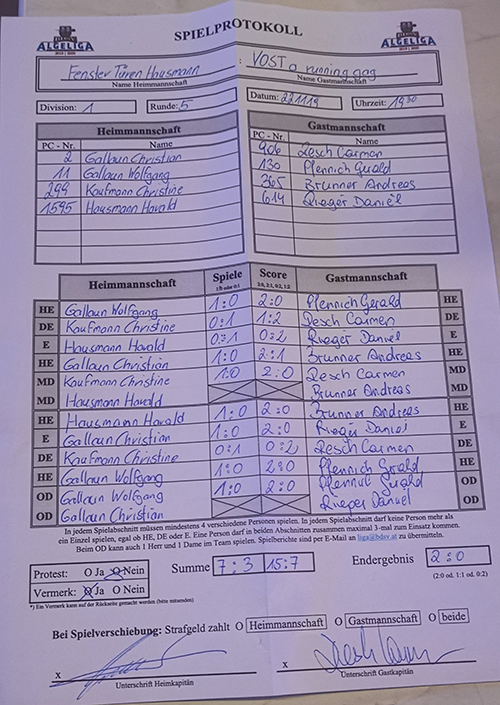 SPIELPROTOKOLL
ALGELIGA
ALGELIGA
Fenster Türen Hausmann : VOST a running gag
Name Heimmannschaft Name Gastmannschaft
Division: 1 Runde: 5 Datum: 221119 Uhrzeit: 19³⁰
Heimmannschaft Gastmannschaft
PC - Nr. Name PC - Nr. Name
2 Gallaun Christian 906 Resch Carmen
11 Gallaun Wolfgang 130 Pfennich Gerald
299 Kaufmann Christine 365 Brunner Andreas
1595 Hausmann Harald 614 Rieger Daniel
Heimmannschaft Spiele Score Gastmannschaft
1:0 oder 0:1 2:0, 2:1, 0:2, 1:2
HE Gallaun Wolfgang 1:0 2:0 Pfennich Gerald HE
DE Kaufmann Christine 0:1 1:2 Resch Carmen DE
E Hausmann Harald 0:1 0:2 Rieger Daniel E
HE Gallaun Christian 1:0 2:1 Brunner Andreas HE
MD Kaufmann Christine 1:0 2:0 Resch Carmen MD
MD Hausmann Harald Brunner Andreas MD
HE Hausmann Harald 1:0 2:0 Brunner Andreas HE
E Gallaun Christian 1:0 2:0 Rieger Daniel E
DE Kaufmann Christine 0:1 0:2 Resch Carmen DE
HE Gallaun Wolfgang 1:0 2:0 Pfennich Gerald HE
OD Gallaun Wolfgang 1:0 2:0 Pfennich Gerald OD
OD Gallaun Christian Rieger Daniel OD
In jedem Spielabschnitt müssen mindestens 4 verschiedene Personen spielen. In jedem Spielabschnitt darf keine Person mehr als
ein Einzel spielen, egal ob HE, DE oder E. Eine Person darf in beiden Abschnitten zusammen maximal 3-mal zum Einsatz kommen.
Beim OD kann auch 1 Herr und 1 Dame im Team spielen. Spielberichte sind per E-Mail an liga@bdsv.at zu übermitteln.
Protest: O Ja O Nein Summe 7:3 15:7 Endergebnis 2:0
Vermerk: O Ja O Nein (2:0 od. 1:1 od. 0:2)
*) Ein Vermerk kann auf der Rückseite gemacht werden (bitte mitsenden)
Bei Spielverschiebung: Strafgeld zahlt O Heimmannschaft O Gastmannschaft O beide
x x
Unterschrift Heimkapitän Unterschrift Gastkapitän